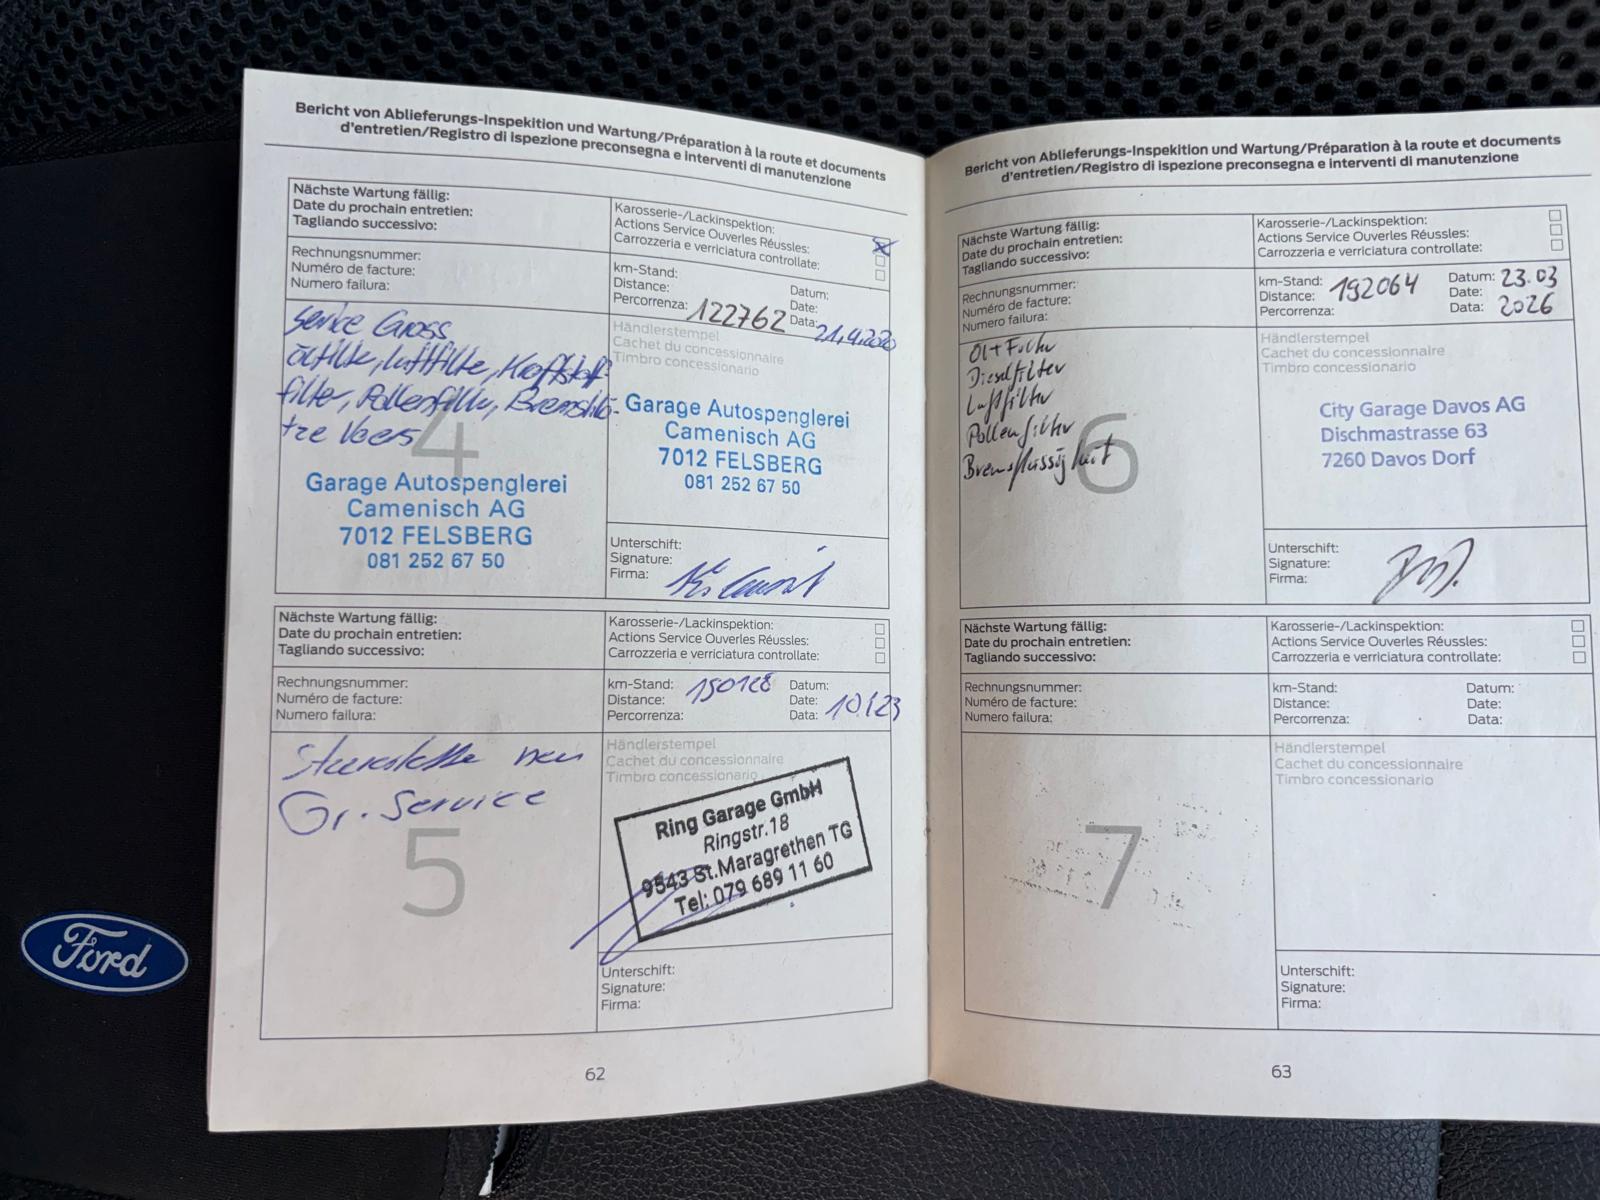 Bericht von Ablieferungs-Inspekition und Wartung/Préparation à la route et documents
d'entretien/Registro di ispezione preconsegna e interventi di manutenzione
Nächste Wartung fällig:
Date du prochain entretien:
Tagliando successivo:
Karosserie-/Lackinspektion:
Actions Service Ouverles Réussles:
Carrozzeria e verriciatura controllate:
Rechnungsnummer:
Numéro de facture:
Numero failura:
km-Stand:
Distance:
Percorrenza: 122762
Datum:
Date:
Data: 21.4.2020
Service Gross
Ölfilter, Luftfilter, Kraftstoff-
filter, Pollenfilter,
4
Garage Autospenglerei
Camenisch AG
7012 FELSBERG
081 252 67 50
Händlerstempel
Cachet du concessionnaire
Timbro concessionario
Garage Autospenglerei
Camenisch AG
7012 FELSBERG
081 252 67 50
Unterschift:
Signature:
Firma:
Nächste Wartung fällig:
Date du prochain entretien:
Tagliando successivo:
Karosserie-/Lackinspektion:
Actions Service Ouverles Réussles:
Carrozzeria e verriciatura controllate:
Rechnungsnummer:
Numéro de facture:
Numero failura:
km-Stand:
Distance:
Percorrenza:
Datum:
Date:
Data: 10.23
Steuerkette neu
Gr. Service
5
Händlerstempel
Cachet du concessionnaire
Timbro concessionario
Ring Garage GmbH
Ringstr.18
9543 St.Maragrethen TG
Tel: 079 689 11 60
Unterschift:
Signature:
Firma:
62
Bericht von Ablieferungs-Inspekition und Wartung/Préparation à la route et documents
d'entretien/Registro di ispezione preconsegna e interventi di manutenzione
Nächste Wartung fällig:
Date du prochain entretien:
Tagliando successivo:
Karosserie-/Lackinspektion:
Actions Service Ouverles Réussles:
Carrozzeria e verriciatura controllate:
Rechnungsnummer:
Numéro de facture:
Numero failura:
km-Stand: 192064
Distance:
Percorrenza:
Datum: 23.03
Date:
Data: 2026
Öl+Filter
Dieselfilter
Luftfilter
Pollenfilter
Bremsflüssigkeit
6
Händlerstempel
Cachet du concessionnaire
Timbro concessionario
City Garage Davos AG
Dischmastrasse 63
7260 Davos Dorf
Unterschift:
Signature:
Firma:
Nächste Wartung fällig:
Date du prochain entretien:
Tagliando successivo:
Karosserie-/Lackinspektion:
Actions Service Ouverles Réussles:
Carrozzeria e verriciatura controllate:
Rechnungsnummer:
Numéro de facture:
Numero failura:
km-Stand:
Distance:
Percorrenza:
Datum:
Date:
Data:
7
Händlerstempel
Cachet du concessionnaire
Timbro concessionario
Unterschift:
Signature:
Firma:
63
Ford